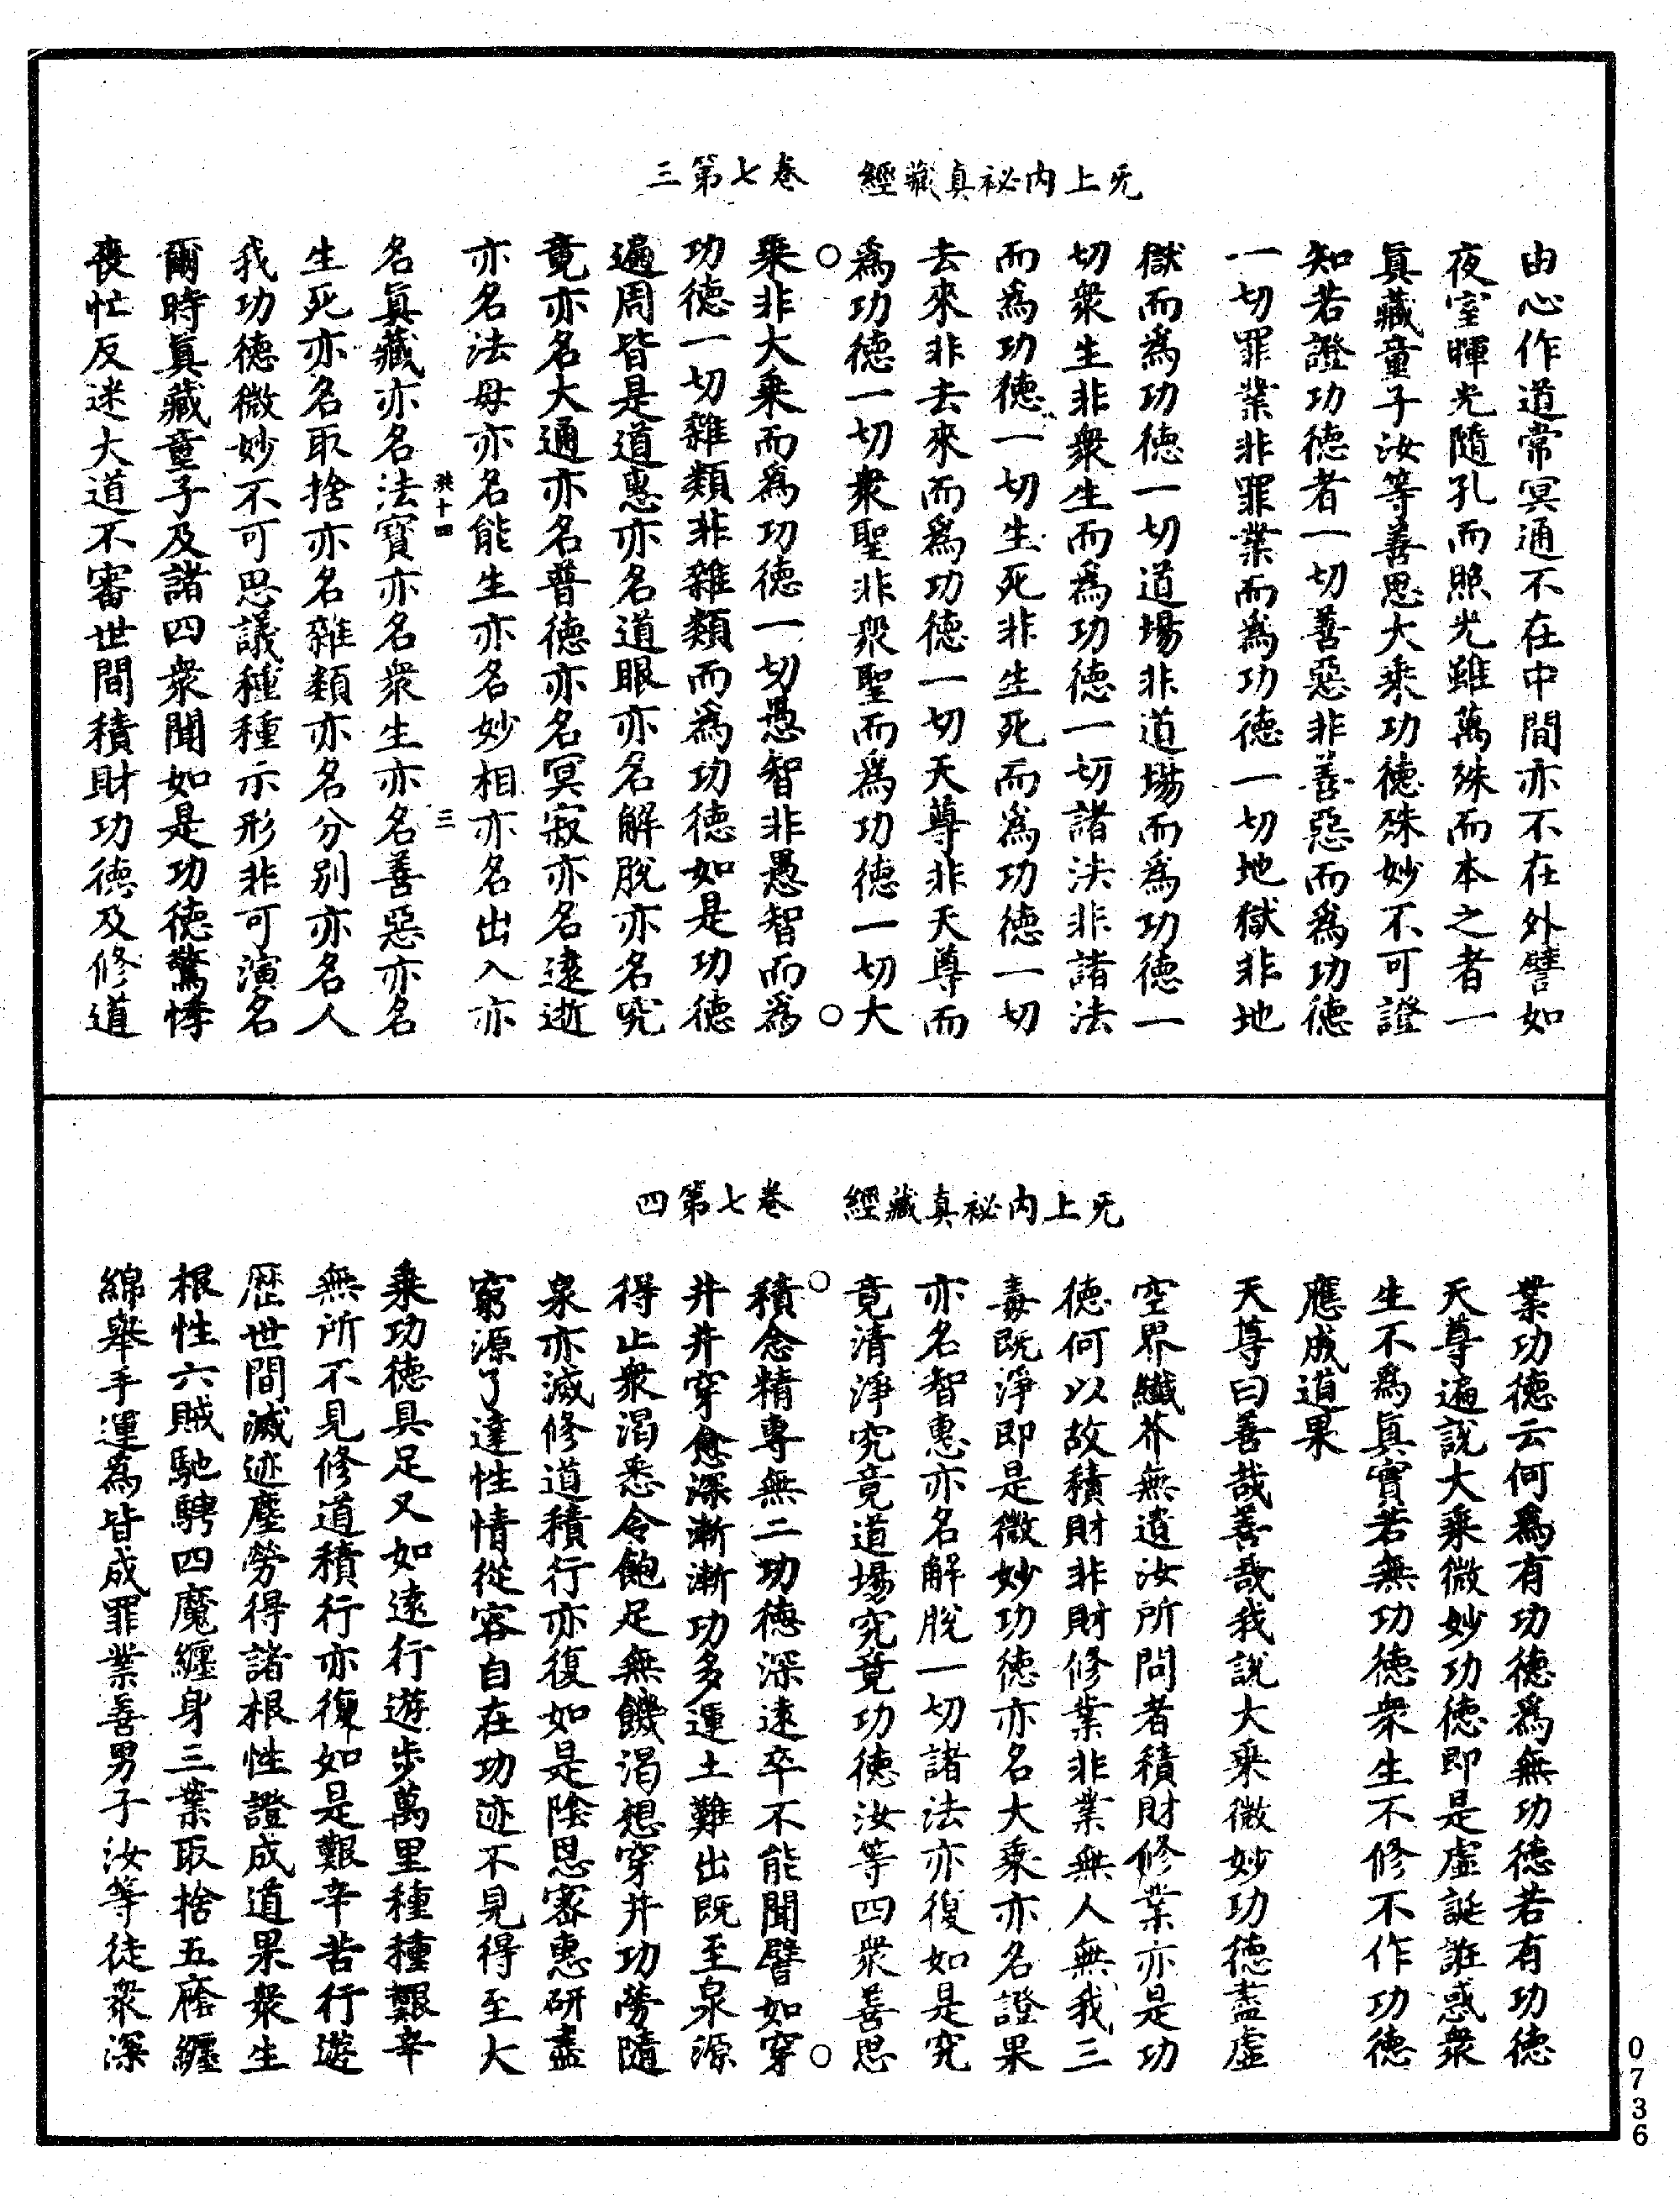 无上內祕真藏經　卷七第三
由心作道常冥通不在中間亦不在外譬如
夜室暉光隨孔而照光雖萬殊而本之者一
眞藏童子汝等善思大乘功德殊妙不可證
知若證功德者一切善惡非善惡而爲功德
一切罪業非罪業而爲功德一切地獄非地
獄而爲功德一切道場非道場而爲功德一
切衆生非衆生而爲功德一切諸法非諸法
而爲功德一切生死非生死而爲功德一切
去來非去來而爲功德一切天尊非天尊而
爲功德一切衆聖非衆聖而爲功德一切大
乘非大乘而爲功德一切愚智非愚智而爲
功德一切雜類非雜類而爲功德如是功德
遍周皆是道惠亦名道眼亦名解脫亦名究
竟亦名大通亦名普德亦名冥寂亦名遠逝
亦名法母亦名能生亦名妙相亦名出入亦
名眞藏亦名法寶亦名衆生亦名善惡亦名
生死亦名取捨亦名雜類亦名分別亦名人
我功德微妙不可思議種種示形非可演名
爾時眞藏童子及諸四衆聞如是功德驚悸
喪忙反迷大道不審世間積財功德及修道
十四　三
无上內祕真藏經　卷七第四
業功德云何爲有功德爲無功德若有功德
天尊遍說大乘微妙功德即是虛誕誑惑衆
生不爲眞實若無功德衆生不修不作功德
應成道果
天尊曰善哉善哉我說大乘微妙功德盡虛
空界纖芥無遺汝所問者積財修業亦是功
德何以故積財非財修業非業無人無我三
毒既淨即是微妙功德亦名大乘亦名證果
亦名智惠亦名解脫一切諸法亦復如是究
竟清淨究竟道場究竟功德汝等四衆善思
積念精專無二功德深遠卒不能聞譬如穿
井井穿愈深漸漸功多運土難出既至泉源
得止衆渴悉令飽足無饑渴想穿井功勞隨
泉亦滅修道積行亦復如是陰思密惠研盡
窮源了達性情從容自在功迹不見得至大
乘功德具足又如遠行遊步萬里種種艱辛
無所不見修道積行亦復如是艱辛苦行遊
歷世間滅迹塵勞得諸根性證成道果衆生
根性六賊馳騁四魔纏身三業取捨五蔭纏
綿舉手運爲皆成罪業善男子汝等徒衆深
0736